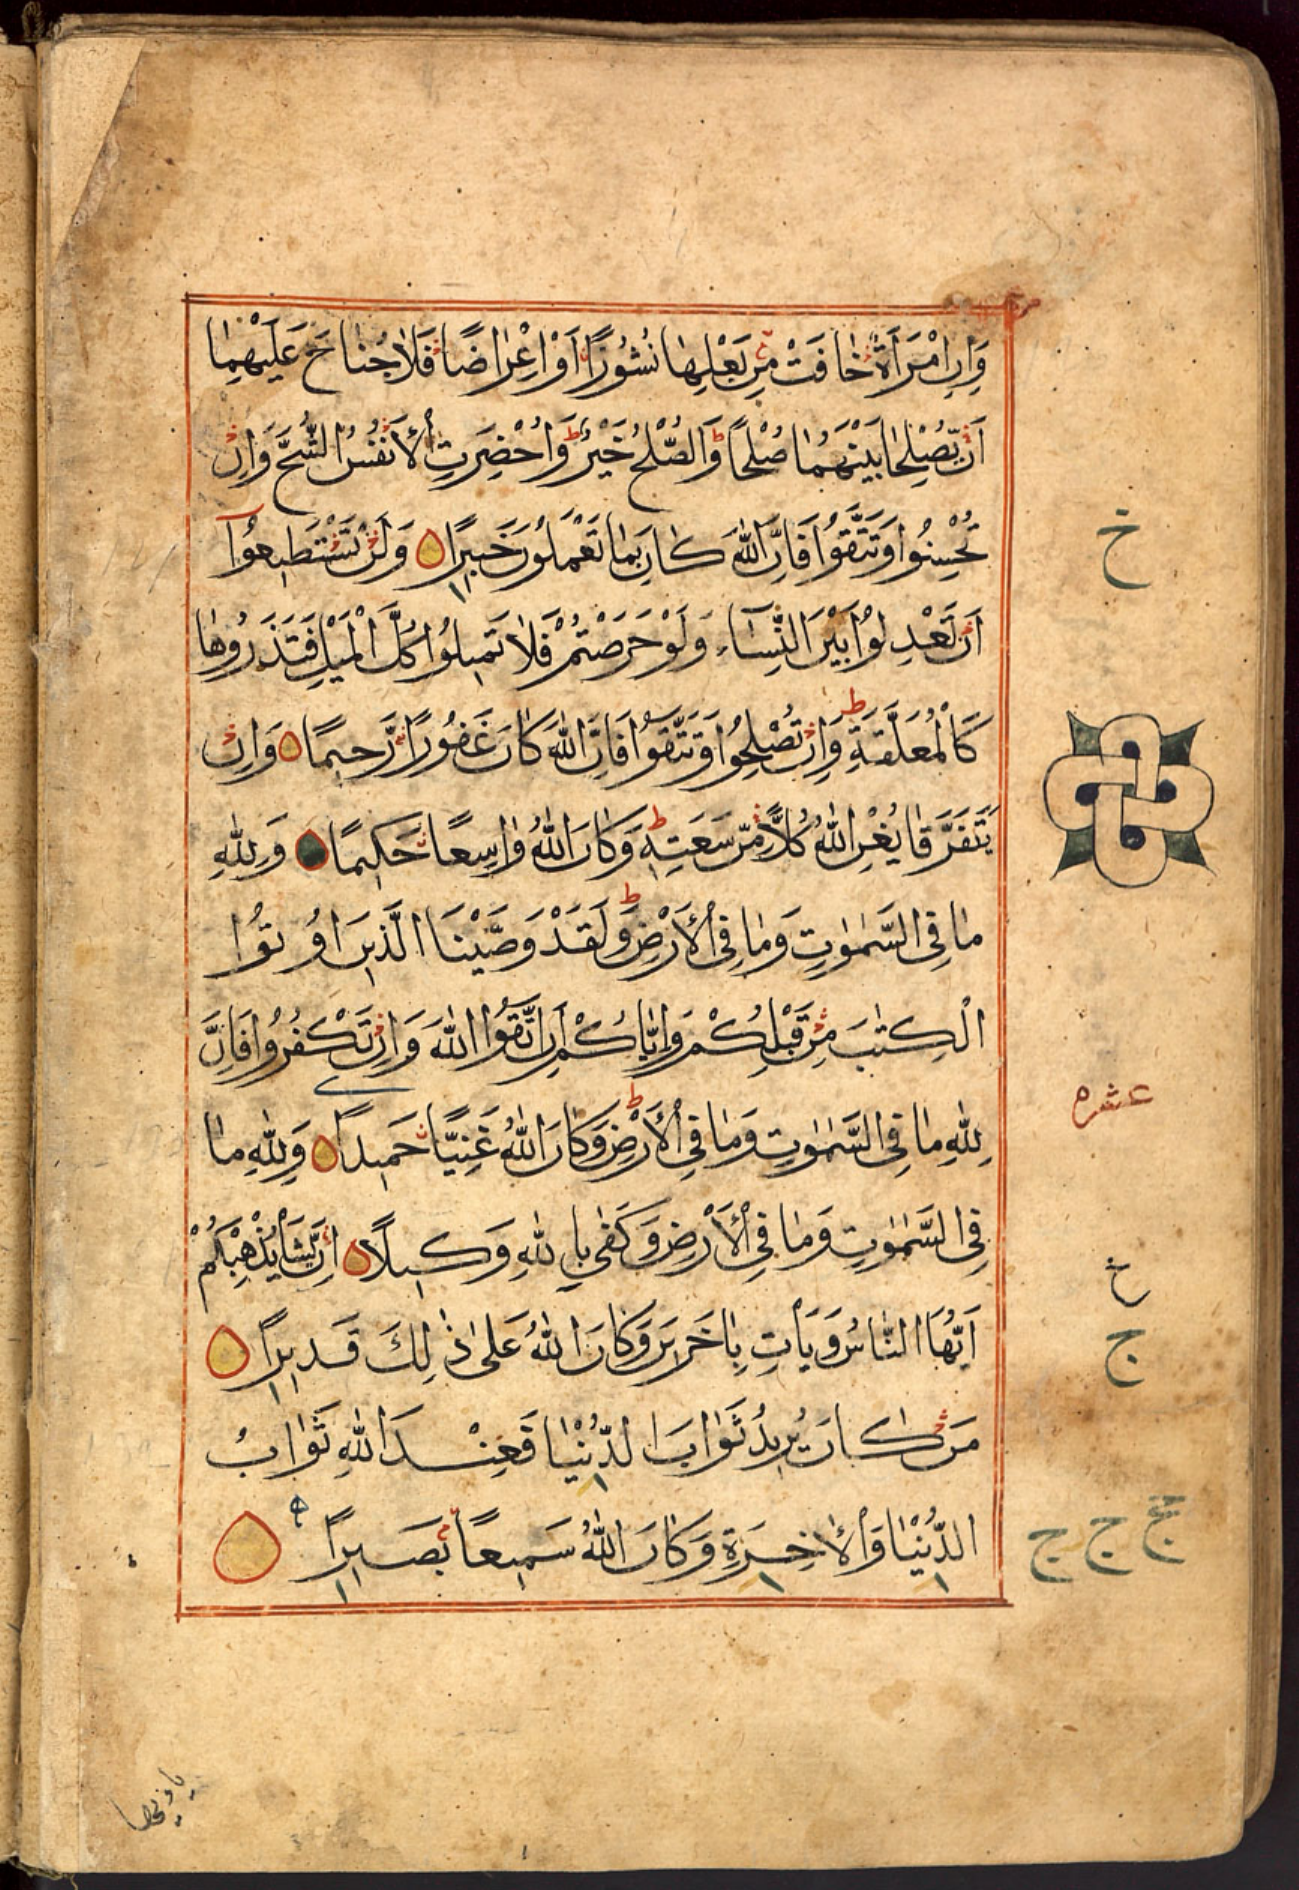 وَاِنِ امْرَاَةٌ خَافَتْ مِنْ بَعْلِهَا نُشُوزًا اَوْ اِعْرَاضًا فَلَا جُنَاحَ عَلَيْهِمَا
اَنْ يُصْلِحَا بَيْنَهُمَا صُلْحًا ط وَالصُّلْحُ خَيْرٌ ط وَاُحْضِرَتِ الْاَنْفُسُ الشُّحَّ وَاِنْ
تُحْسِنُوا وَتَتَّقُوا فَاِنَّ اللّٰهَ كَانَ بِمَا تَعْمَلُونَ خَبِيرًا وَلَنْ تَسْتَطِيعُوٓا
خ
اَنْ تَعْدِلُوا بَيْنَ النِّسَآءِ وَلَوْ حَرَصْتُمْ فَلَا تَمِيلُوا كُلَّ الْمَيْلِ فَتَذَرُوهَا
كَالْمُعَلَّقَةِ ط وَاِنْ تُصْلِحُوا وَتَتَّقُوا فَاِنَّ اللّٰهَ كَانَ غَفُورًا رَّحِيمًا وَاِنْ
يَتَفَرَّقَا يُغْنِ اللّٰهُ كُلًّا مِّنْ سَعَتِهِ ط وَكَانَ اللّٰهُ وَاسِعًا حَكِيمًا وَلِلّٰهِ
مَا فِى السَّمٰوٰتِ وَمَا فِى الْاَرْضِ ط وَلَقَدْ وَصَّيْنَا الَّذِينَ اُوتُوا
الْكِتٰبَ مِنْ قَبْلِكُمْ وَاِيَّاكُمْ اَنِ اتَّقُوا اللّٰهَ وَاِنْ تَكْفُرُوا فَاِنَّ
عشره
لِلّٰهِ مَا فِى السَّمٰوٰتِ وَمَا فِى الْاَرْضِ ط وَكَانَ اللّٰهُ غَنِيًّا حَمِيدًا وَلِلّٰهِ مَا
فِى السَّمٰوٰتِ وَمَا فِى الْاَرْضِ وَكَفٰى بِاللّٰهِ وَكِيلًا اِنْ يَّشَاْ يُذْهِبْكُمْ
اَيُّهَا النَّاسُ وَيَاْتِ بِاٰخَرِينَ وَكَانَ اللّٰهُ عَلٰى ذٰلِكَ قَدِيرًا
ج
مَنْ كَانَ يُرِيدُ ثَوَابَ الدُّنْيَا فَعِنْدَ اللّٰهِ ثَوَابُ
الدُّنْيَا وَالْاٰخِرَةِ وَكَانَ اللّٰهُ سَمِيعًا بَصِيرًا ه
ج ج